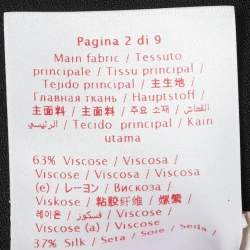 Pagina 2 di 9
Main fabric / Tessuto
principale / Tissu principal /
Tejido principal / 主生地 /
Главная ткань / Hauptstoff /
主面料 / 主面料 / 주요 소재 / القماش
الرئيسي / Tecido principal / Kain
utama
63% Viscose / Viscosa /
Viscose / Viscosa / Viscosa
(e) / レーヨン / Вискоза /
Viskose / 粘胶纤维 / 嫘縈 /
레이온 / فسكوز / Viscose /
Viscose (a) / Viscose
37% Silk / Seta / Soie / Seda /